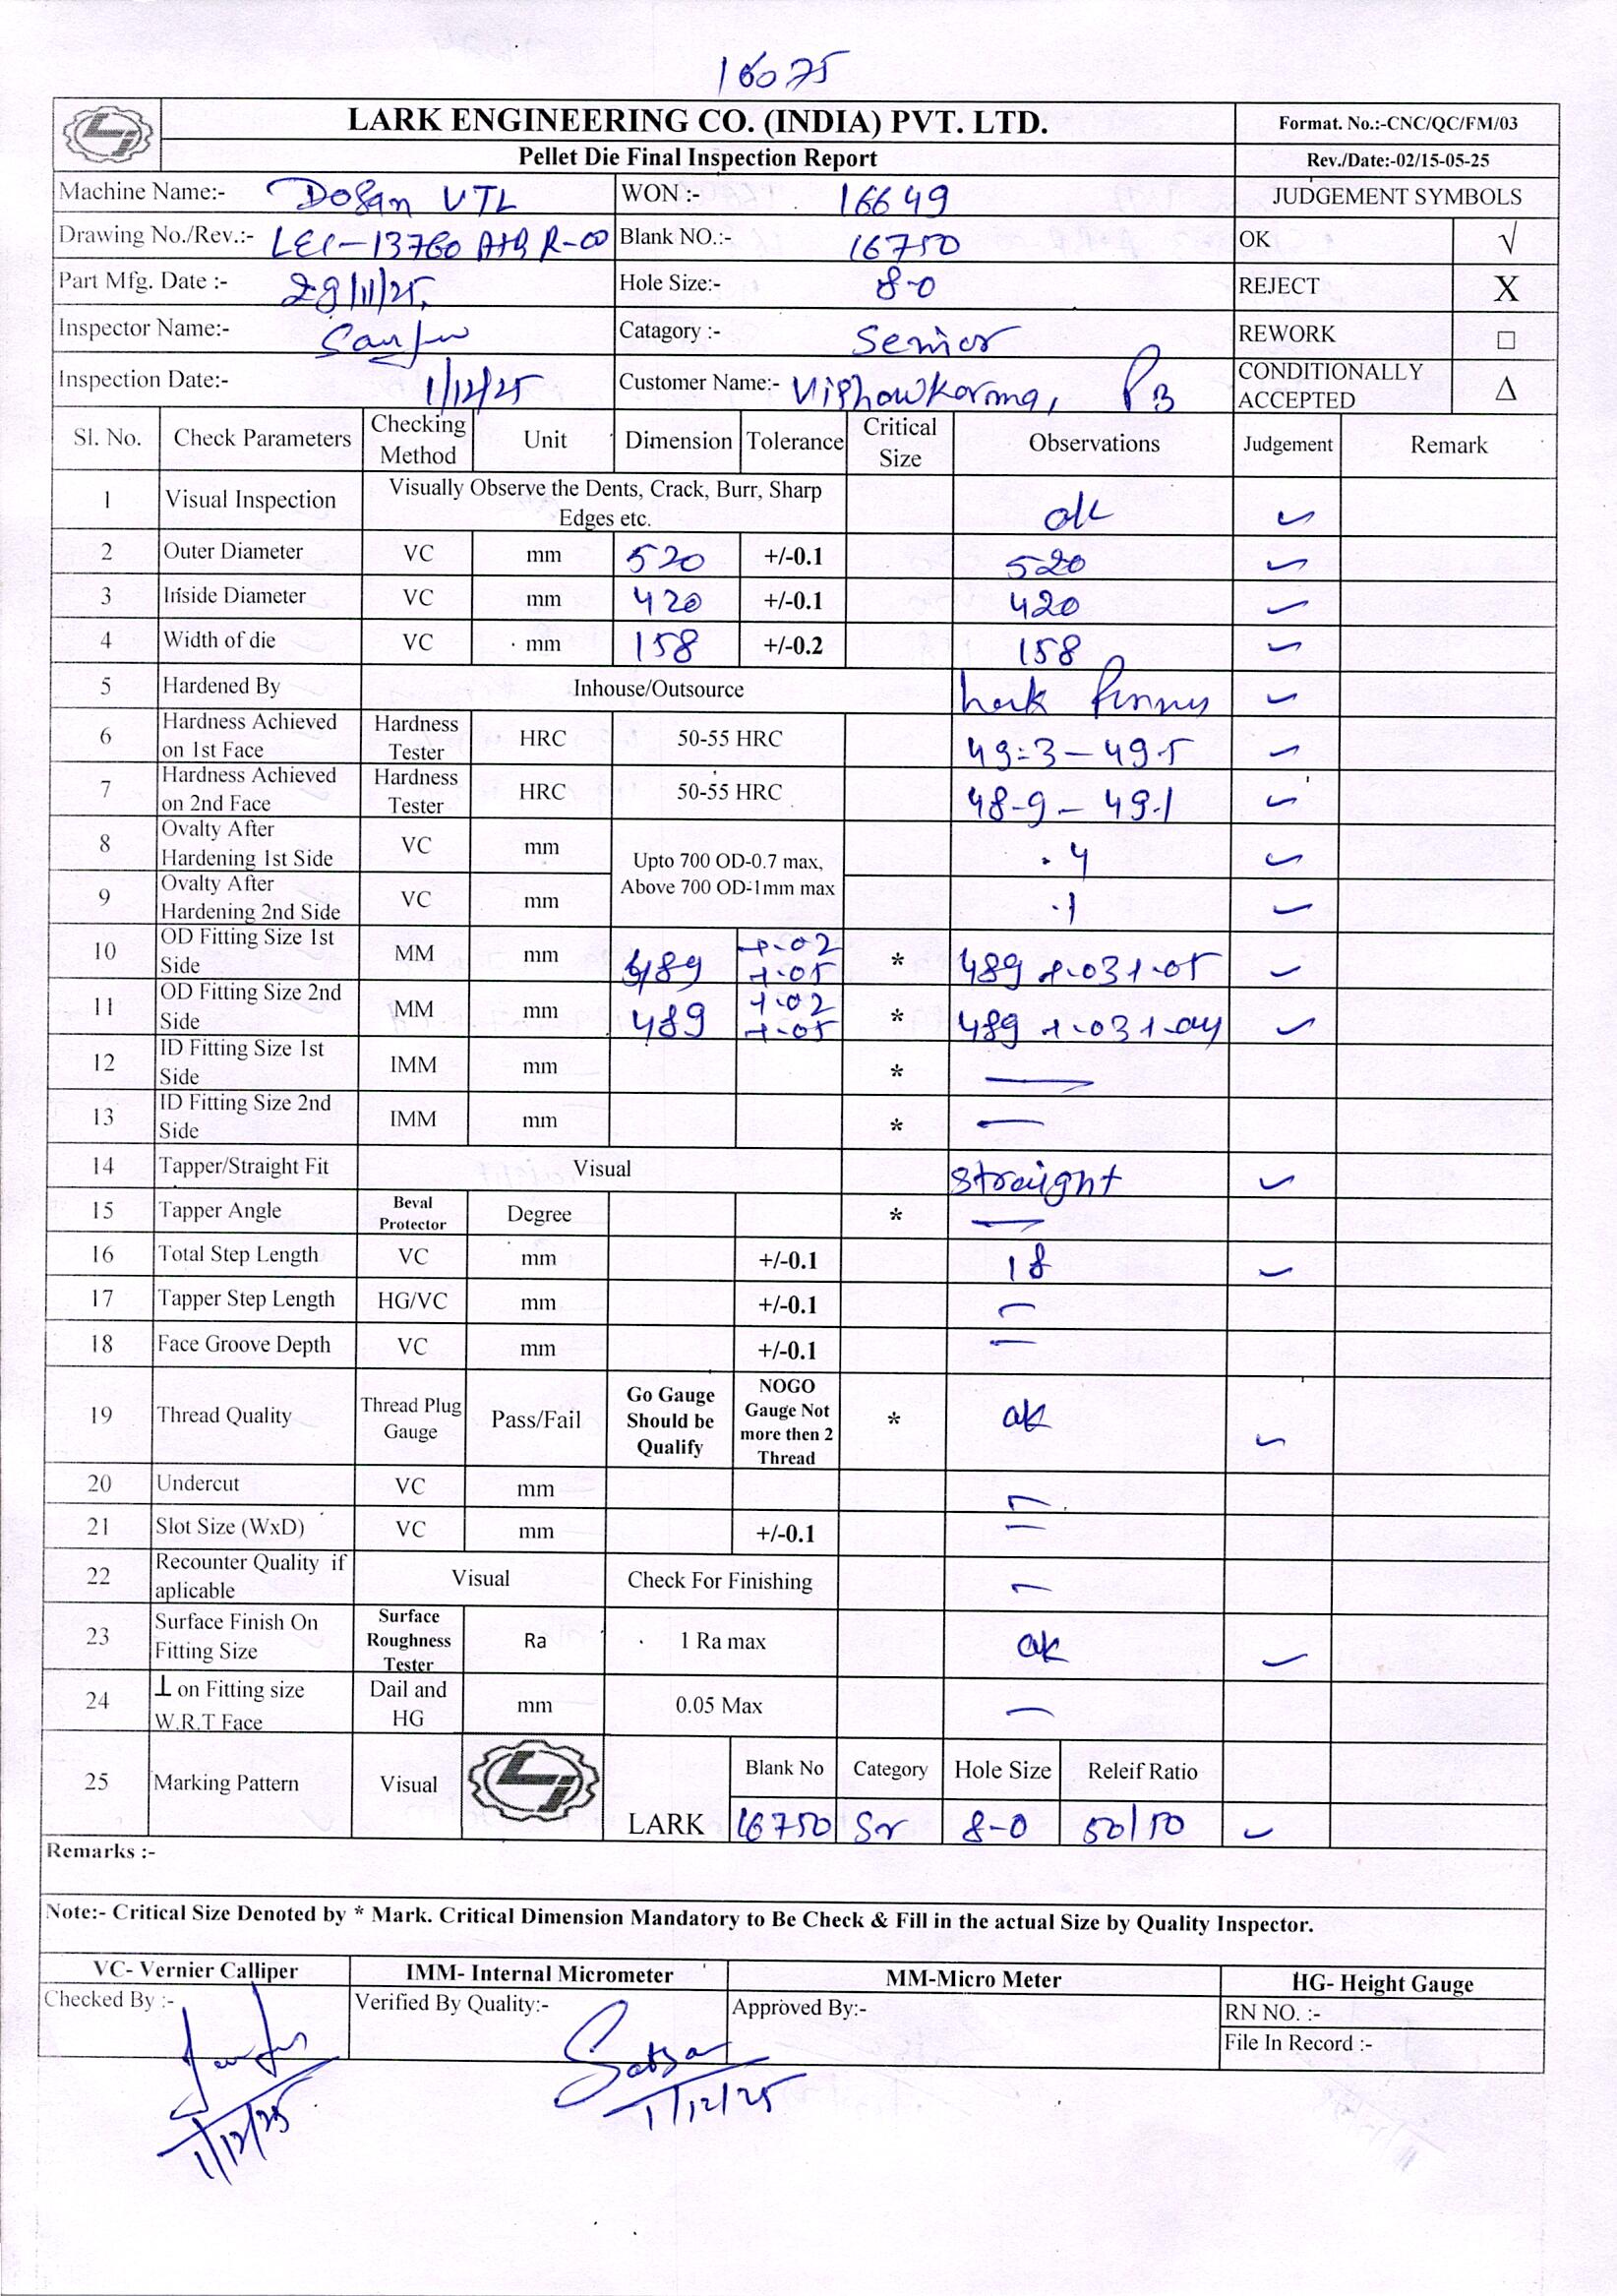 16075
LARK ENGINEERING CO. (INDIA) PVT. LTD.
Format. No.:-CNC/QC/FM/03
Pellet Die Final Inspection Report
Rev./Date:-02/15-05-25
Machine Name:- Dosan VTL WON :- 16649 JUDGEMENT SYMBOLS
Drawing No./Rev.:- LEI-13760 A+B R-00 Blank NO.:- 16750 OK √
Part Mfg. Date :- 29/11/25 Hole Size:- 8-0 REJECT X
Inspector Name:- Catagory :- Senior REWORK □
Inspection Date:- 1/12/25 Customer Name:- Vishawkarma, PB CONDITIONALLY ACCEPTED Δ
Sl. No. Check Parameters Checking Method Unit Dimension Tolerance Critical Size Observations Judgement Remark
1 Visual Inspection Visually Observe the Dents, Crack, Burr, Sharp Edges etc. ok ✓
2 Outer Diameter VC mm 520 +/-0.1 520 ✓
3 Inside Diameter VC mm 420 +/-0.1 420 ✓
4 Width of die VC mm 158 +/-0.2 158 ✓
5 Hardened By Inhouse/Outsource ✓
6 Hardness Achieved on 1st Face Hardness Tester HRC 50-55 HRC 49.3 – 49.5 ✓
7 Hardness Achieved on 2nd Face Hardness Tester HRC 50-55 HRC 48-9 – 49.1 ✓
8 Ovalty After Hardening 1st Side VC mm Upto 700 OD-0.7 max, Above 700 OD-1mm max .4 ✓
9 Ovalty After Hardening 2nd Side VC mm .1 ✓
10 OD Fitting Size 1st Side MM mm 489 +.02 +.05 * 489 +.03 +.05 ✓
11 OD Fitting Size 2nd Side MM mm 489 +.02 +.05 * 489 +.03 +.04 ✓
12 ID Fitting Size 1st Side IMM mm * —
13 ID Fitting Size 2nd Side IMM mm * —
14 Tapper/Straight Fit Visual Straight ✓
15 Tapper Angle Beval Protector Degree * —
16 Total Step Length VC mm +/-0.1 18 ✓
17 Tapper Step Length HG/VC mm +/-0.1 —
18 Face Groove Depth VC mm +/-0.1 —
19 Thread Quality Thread Plug Gauge Pass/Fail Go Gauge Should be Qualify NOGO Gauge Not more then 2 Thread * ok ✓
20 Undercut VC mm —
21 Slot Size (WxD) VC mm +/-0.1 —
22 Recounter Quality if aplicable Visual Check For Finishing —
23 Surface Finish On Fitting Size Surface Roughness Tester Ra 1 Ra max ok ✓
24 ⊥ on Fitting size W.R.T Face Dail and HG mm 0.05 Max —
25 Marking Pattern Visual LARK Blank No Category Hole Size Releif Ratio
16750 Sr 8-0 50/50 ✓
Remarks :-
Note:- Critical Size Denoted by * Mark. Critical Dimension Mandatory to Be Check & Fill in the actual Size by Quality Inspector.
VC- Vernier Calliper IMM- Internal Micrometer MM-Micro Meter HG- Height Gauge
Checked By :- Verified By Quality:- Approved By:- RN NO. :-
File In Record :-
1/12/25 1/12/25